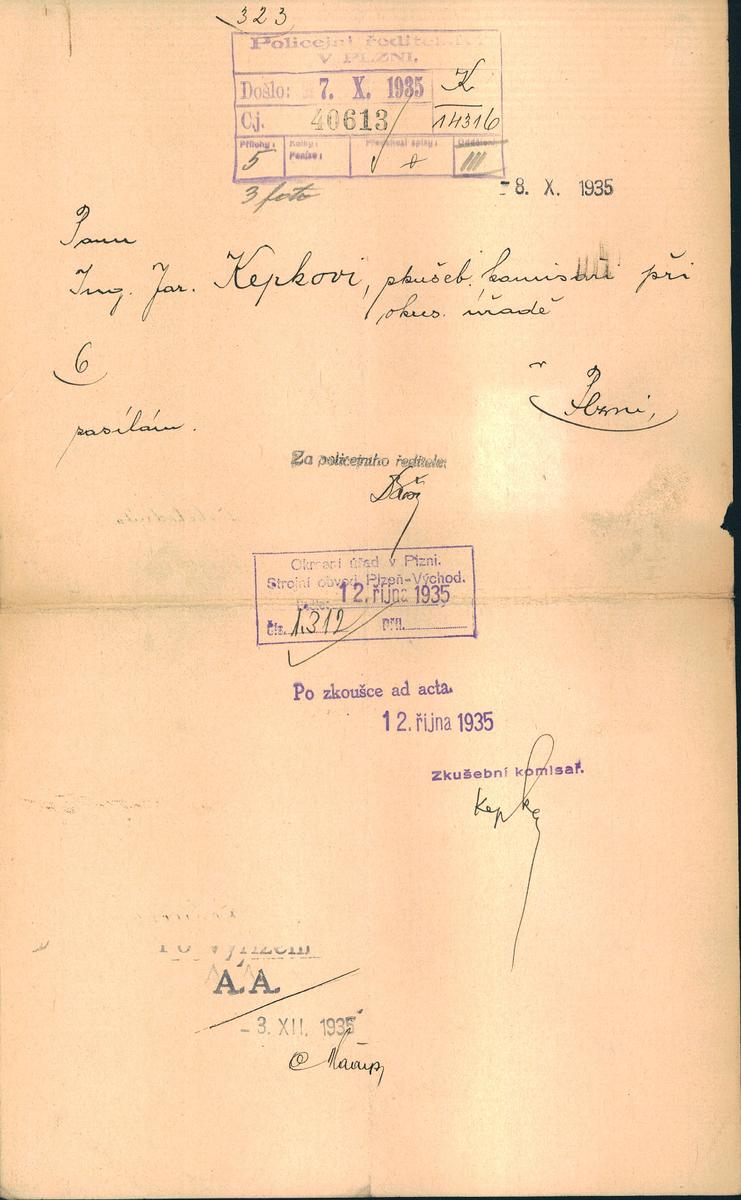 323
Policejní ředitelství
V PLZNI.
Došlo: 7. X. 1935 K
Čj. 40613 14316
Přílohy: Kolky: Předchozí spisy: Oddělení:
5 Peníze: III
3 foto
-8. X. 1935
Panu
Ing. Jar. Kepkovi, zkušeb. komisaři při
okres. úřadě
6
v Plzni,
zasílám.
Za policejního ředitele:
Okresní úřad v Plzni.
Strojní obvod Plzeň-Východ.
12. října 1935
Čís. 1.312 příl.
Po zkoušce ad acta.
12. října 1935
Zkušební komisař.
Kepka
Po vyřízení
A. A.
-3. XII. 1935